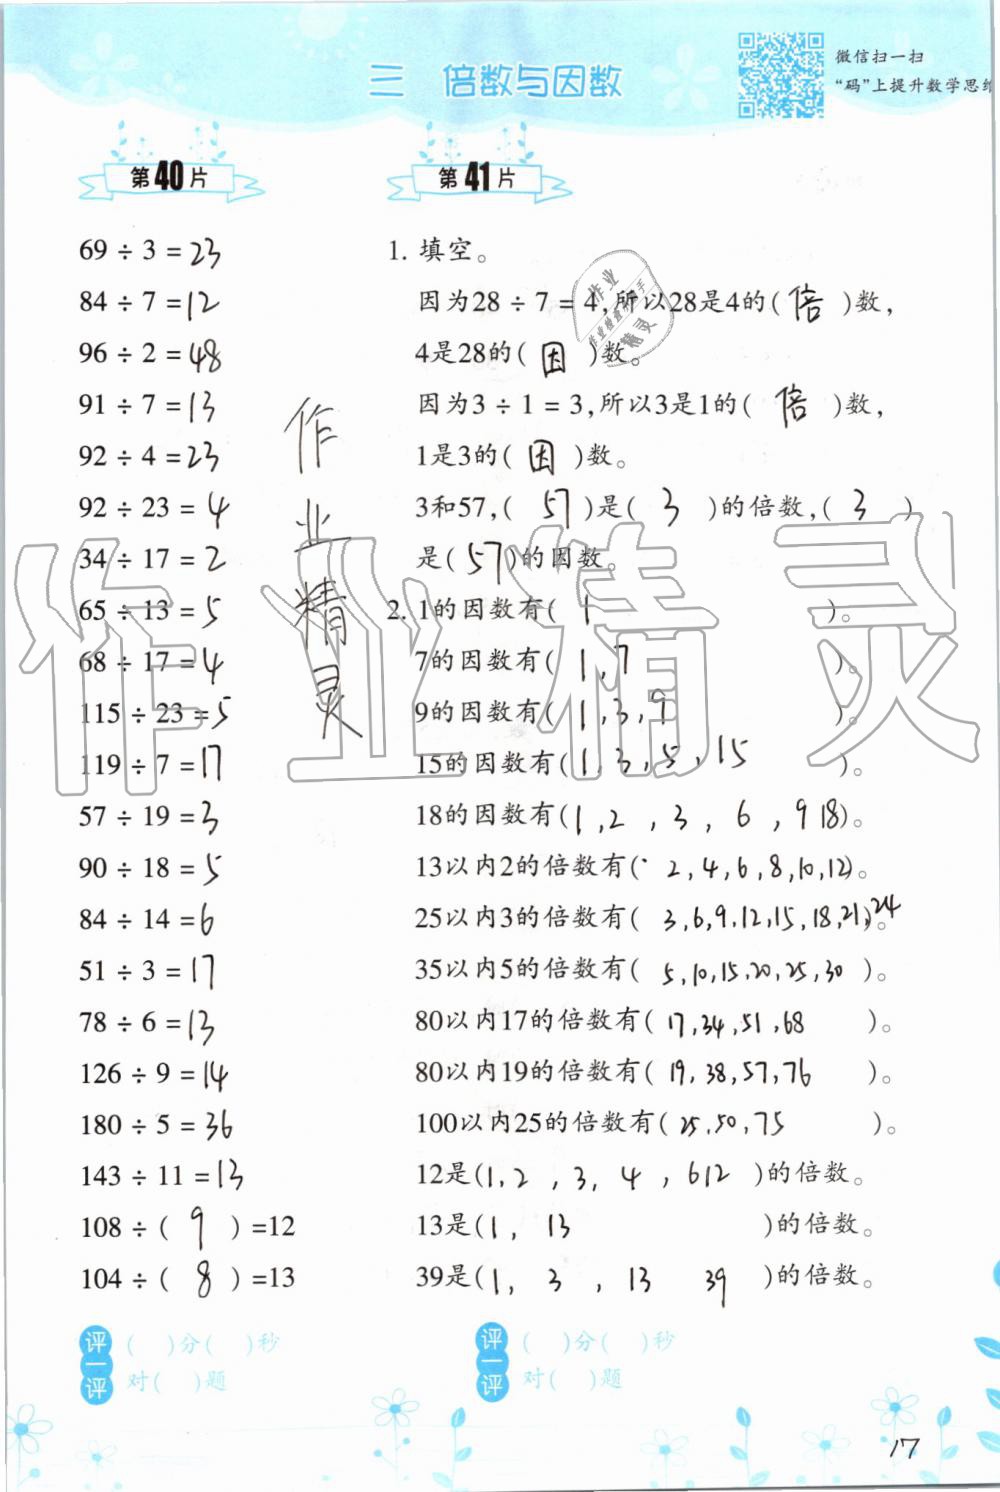 三 倍数与因数
微信扫一扫
“码”上提升数学思维
第40片
69 ÷ 3 = 23
84 ÷ 7 = 12
96 ÷ 2 = 48
91 ÷ 7 = 13
92 ÷ 4 = 23
92 ÷ 23 = 4
34 ÷ 17 = 2
65 ÷ 13 = 5
68 ÷ 17 = 4
115 ÷ 23 = 5
119 ÷ 7 = 17
57 ÷ 19 = 3
90 ÷ 18 = 5
84 ÷ 14 = 6
51 ÷ 3 = 17
78 ÷ 6 = 13
126 ÷ 9 = 14
180 ÷ 5 = 36
143 ÷ 11 = 13
108 ÷ ( 9 ) =12
104 ÷ ( 8 ) =13
评一评
( )分( )秒
对( )题
作业精灵
第41片
1. 填空。
因为28 ÷ 7 = 4,所以28是4的( 倍 )数,
4是28的( 因 )数。
因为3 ÷ 1 = 3,所以3是1的( 倍 )数,
1是3的( 因 )数。
3和57,( 57 )是( 3 )的倍数,( 3 )
是( 57 )的因数。
2. 1的因数有( 1 )。
7的因数有( 1,7 )。
9的因数有( 1,3,9 )。
15的因数有( 1,3,5,15 )。
18的因数有( 1,2,3,6,9 18)。
13以内2的倍数有( 2,4,6,8,10,12)。
25以内3的倍数有( 3,6,9,12,15,18,21,24 )。
35以内5的倍数有( 5,10,15,20,25,30 )。
80以内17的倍数有( 17,34,51,68 )。
80以内19的倍数有( 19,38,57,76 )。
100以内25的倍数有( 25,50,75 )。
12是(1,2,3,4,6 12 )的倍数。
13是(1,13 )的倍数。
39是(1,3,13 39 )的倍数。
评一评
( )分( )秒
对( )题
17
作业精灵